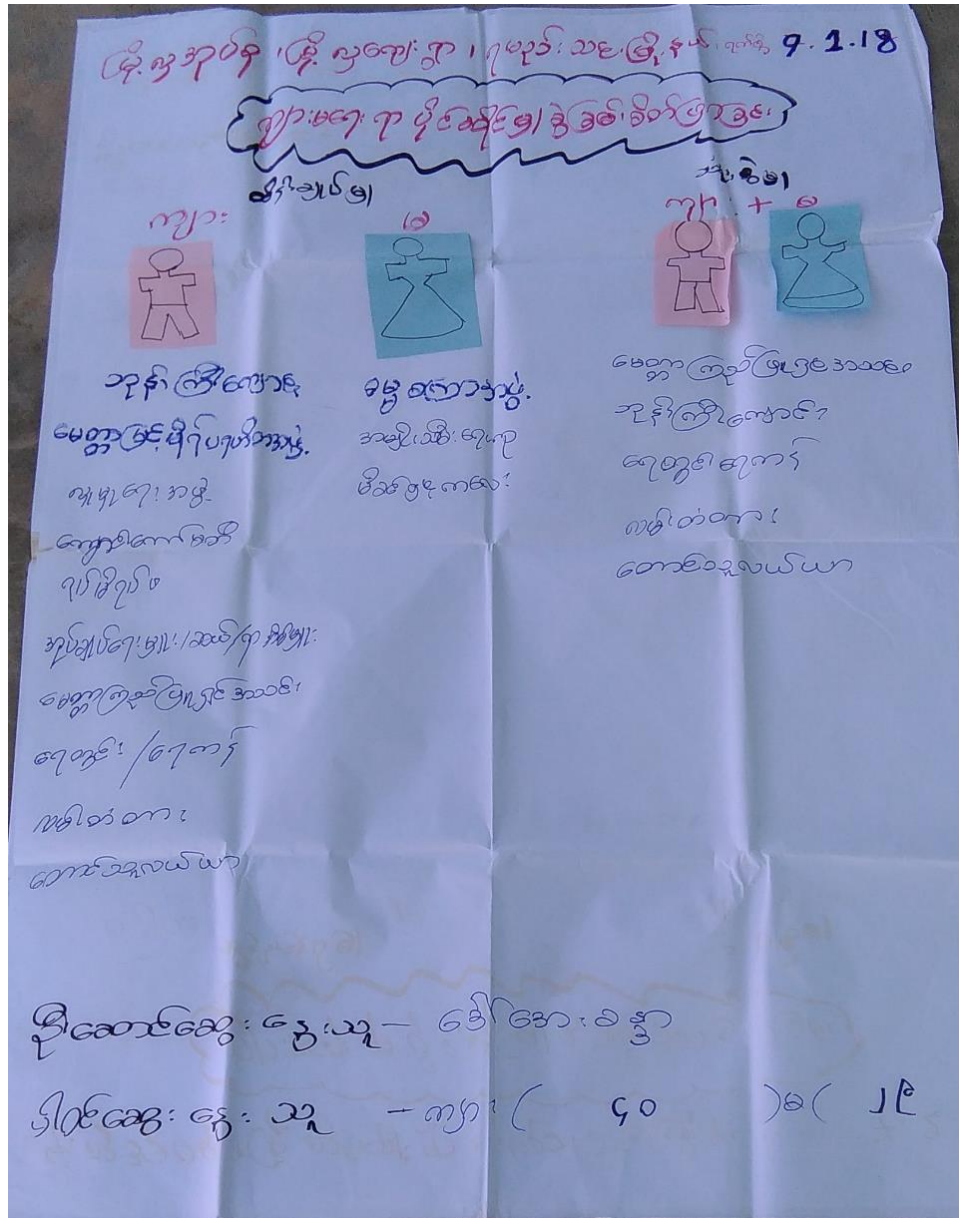 မြို့လှအုပ်စု ၊ မြို့လှကျေးရွာ ၊ ရမည်းသင်းမြို့နယ် ၊ ရက်စွဲ 9.1.18
ကျား၊မရေးရာ ပိုင်ဆိုင်မှု ခွဲခြမ်းစိတ်ဖြာခြင်း
ထိန်းချုပ်မှု
သုံးစွဲမှု
ကျား
မ
ကျား + မ
ဘုန်းကြီးကျောင်း
မေတ္တာမြင့်မိုရ်ပရဟိတအဖွဲ့
လူမှုရေးအဖွဲ့
ကျောင်းကော်မတီ
ရပ်မိရပ်ဖ
အုပ်ချုပ်ရေးမှူး/ဆယ်/ရာအိမ်မှူး
မေတ္တာကြည်ဖြူရှင်အသင်း
ရေတွင်း/ရေကန်
လမ်းတံတား
တောင်သူလယ်ယာ
ဓမ္မစကြာအဖွဲ့
အမျိုးသမီးရေးရာ
မိခင်နှင့်ကလေး
မေတ္တာကြည်ဖြူရှင်အသင်း
ဘုန်းကြီးကျောင်း
ရေတွင်း ရေကန်
လမ်းတံတား
တောင်သူလယ်ယာ
ဦးဆောင်ဆွေးနွေးသူ – ဒေါ်အေးခန္တာ
ပါဝင်ဆွေးနွေးသူ – ကျား ( ၄၀ ) မ (